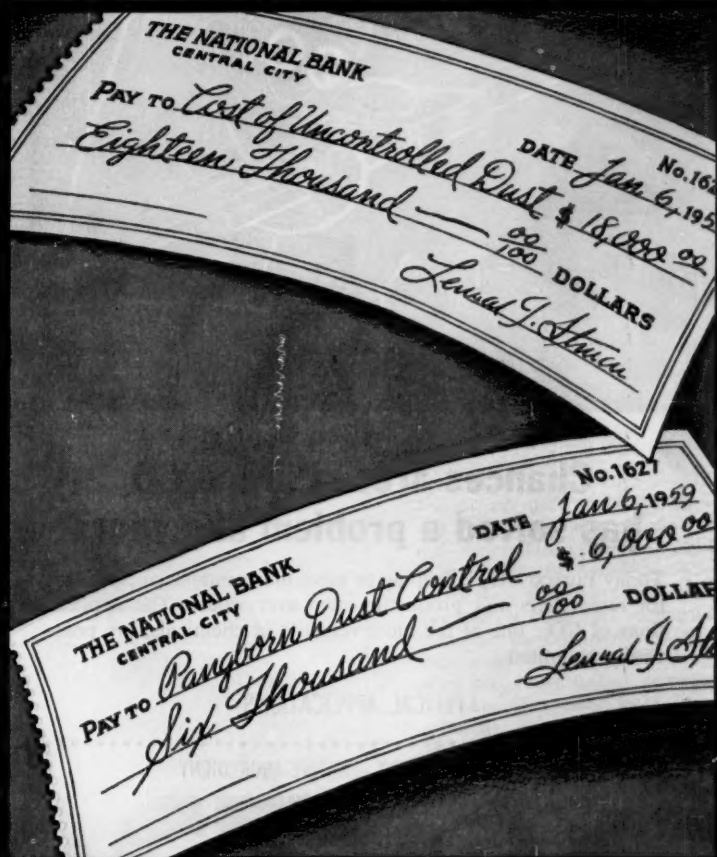 THE NATIONAL BANK
CENTRAL CITY
No.162
DATE Jan 6, 195
PAY TO Cost of Uncontrolled Dust $ 18,000 00
Eighteen Thousand — 00/100 DOLLARS
No.1627
DATE Jan 6, 1959
THE NATIONAL BANK
CENTRAL CITY
PAY TO Pangborn Dust Control $ 6,000 00
Six Thousand — 00/100 DOLLAR